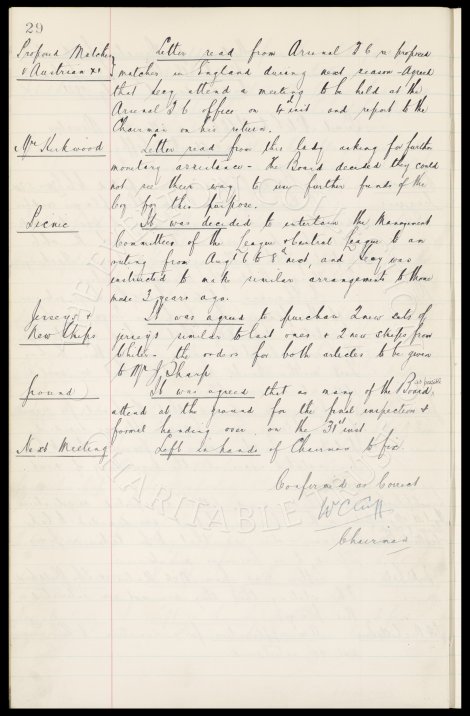 29
Proposed Matches
v Austrian XI
Letter read from Arsenal F C re proposed
matches in England during next season - Agreed
that Secy attend a meeting to be held at the
Arsenal F C office on inst and report to the
Chairman on his return.
Mrs Kirkwood
Letter read from this lady asking for further
monetary assistance - the Board decided they could
not see their way to use further funds of the
Coy for this purpose.
Picnic
It was decided to entertain the Management
Committees of the League & Central League to an
outing from Augt 6 to 8th next, and Secy was
instructed to make similar arrangements to those
made 3 years ago.
Jerseys &
New Strips
It was agreed to purchase 2 new sets of
jerseys similar to last ones & 2 new strips from
- the orders for both articles to be given
to Mr J Sharp
Ground
It was agreed that as many of the Board as possible
attend at the ground for the final inspection &
formal handing over on the 31st inst
Next Meeting
Left in hands of Chairman to fix.
Confirmed as Correct
W C Cuff
Chairman
CHARITABLE